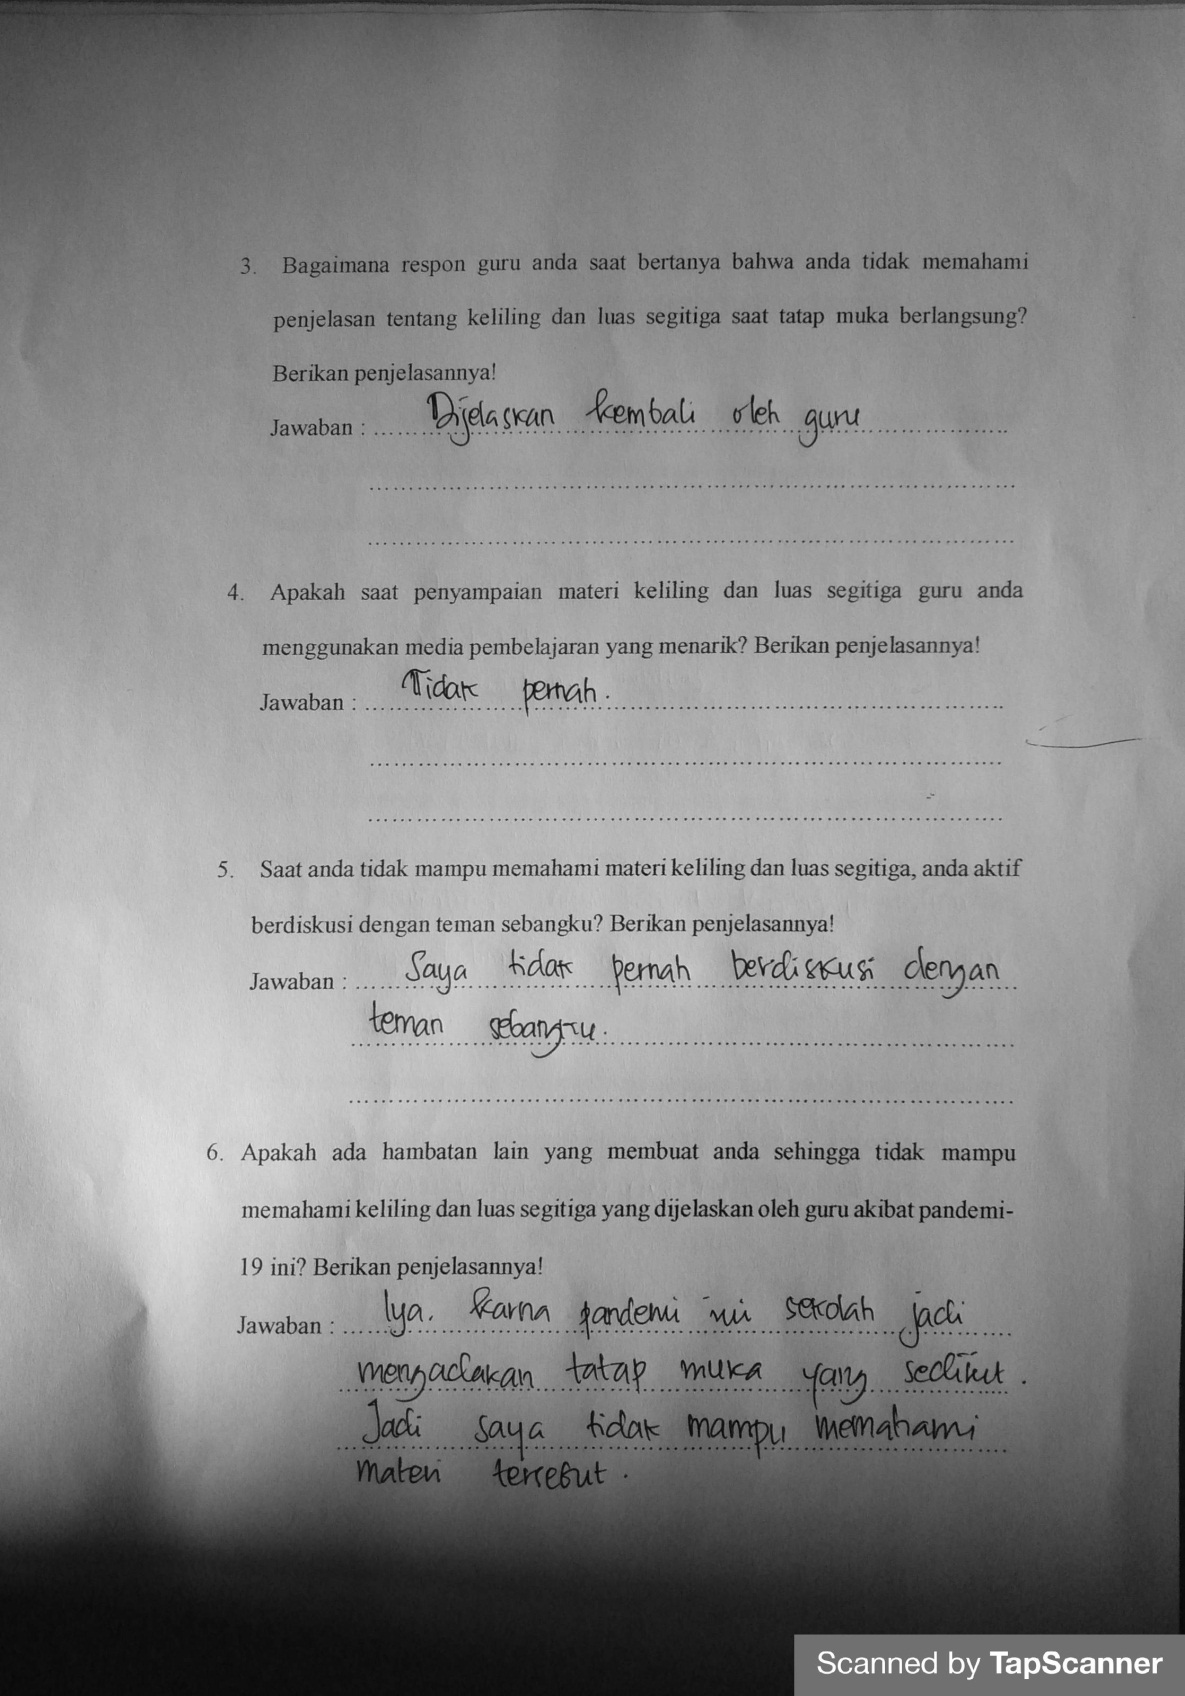 3. Bagaimana respon guru anda saat bertanya bahwa anda tidak memahami
penjelasan tentang keliling dan luas segitiga saat tatap muka berlangsung?
Berikan penjelasannya!
Jawaban : Dijelaskan kembali oleh guru
4. Apakah saat penyampaian materi keliling dan luas segitiga guru anda
menggunakan media pembelajaran yang menarik? Berikan penjelasannya!
Jawaban : Tidak pernah.
5. Saat anda tidak mampu memahami materi keliling dan luas segitiga, anda aktif
berdiskusi dengan teman sebangku? Berikan penjelasannya!
Jawaban : Saya tidak pernah berdiskusi dengan
teman sebangku.
6. Apakah ada hambatan lain yang membuat anda sehingga tidak mampu
memahami keliling dan luas segitiga yang dijelaskan oleh guru akibat pandemi-
19 ini? Berikan penjelasannya!
Jawaban : Iya. karna pandemi ini sekolah jadi
mengadakan tatap muka yang sedikit.
Jadi saya tidak mampu memahami
materi tersebut.
Scanned by TapScanner